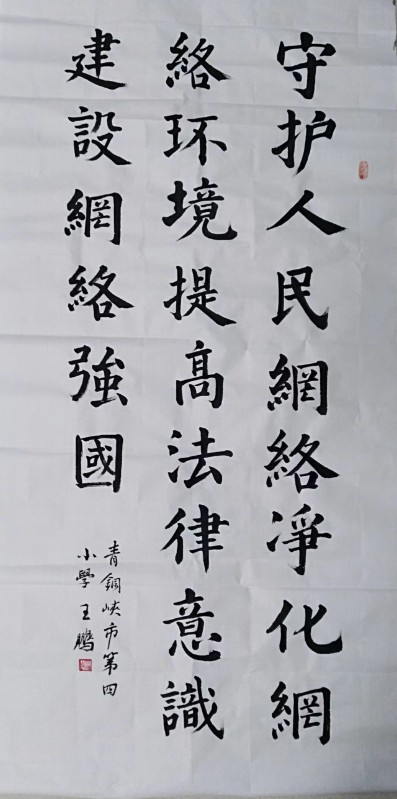 守护人民網絡凈化網
絡环境提高法律意識
建設網絡強國
青銅峽市第四
小學王鵬